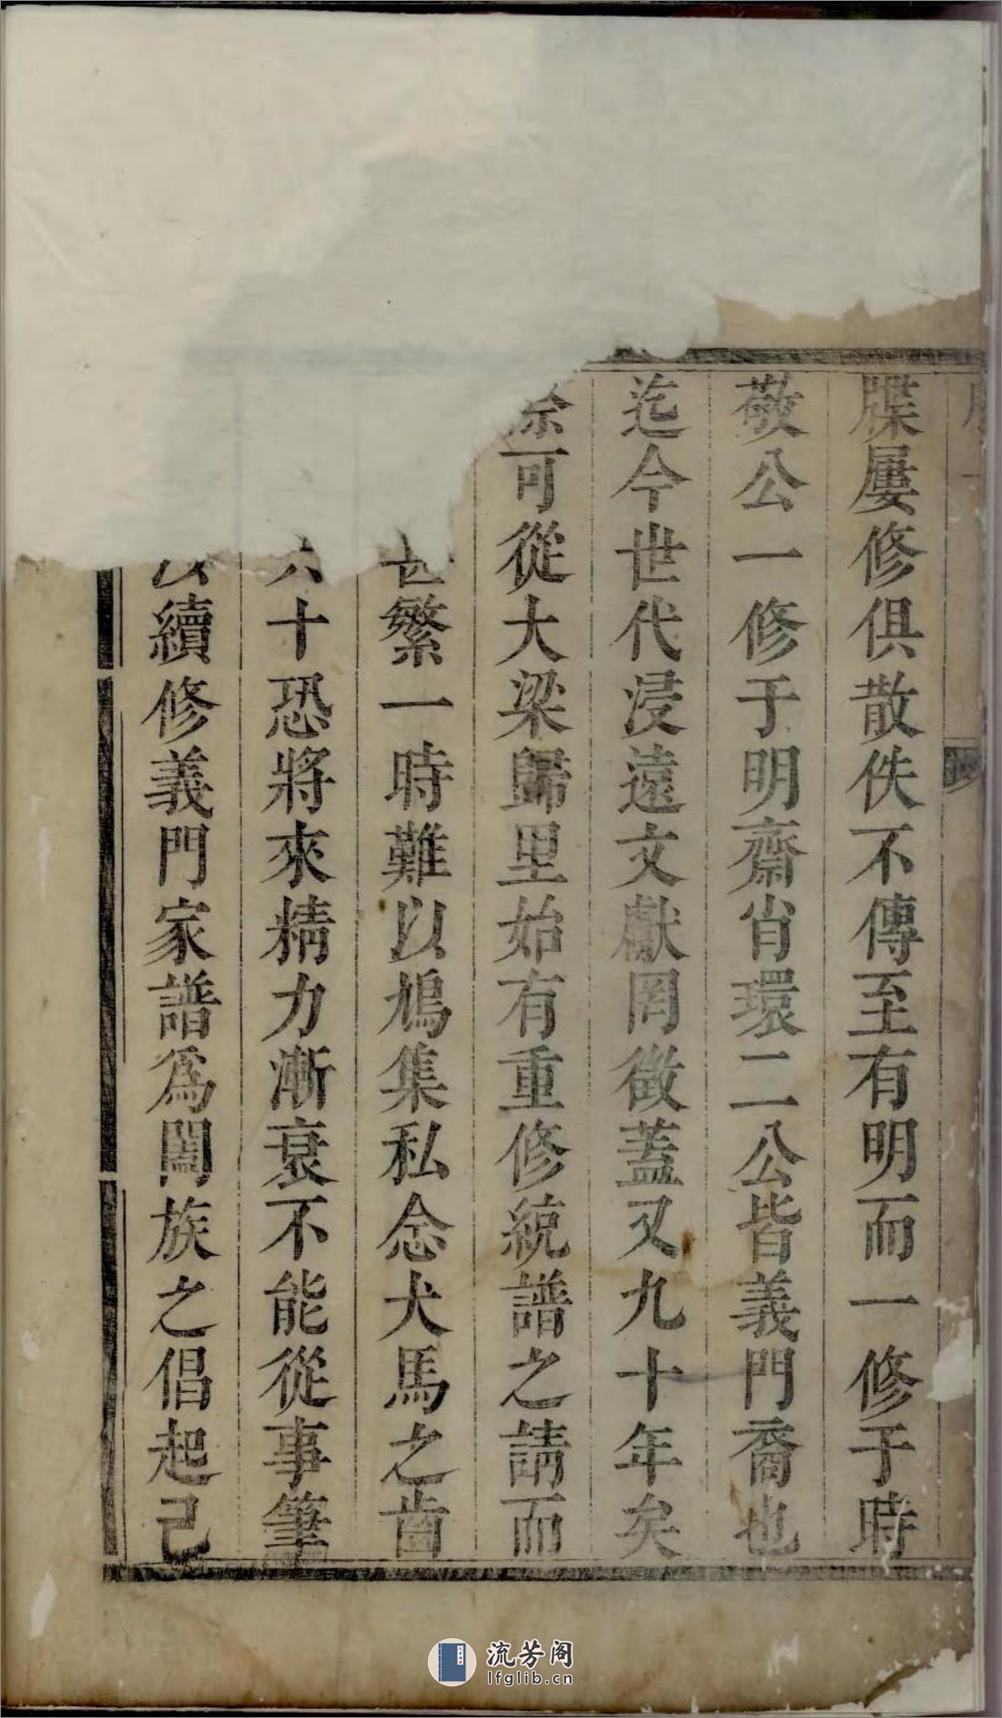 牒屢修俱散佚不傳至有明而一修于時
敬公一修于明齋肖環二公皆義門裔也
迄今世代浸遠文獻罔徵蓋又九十年矣
可從大梁歸里始有重修統譜之請而
繁一時難以鳩集私念犬馬之齒
六十恐將來精力漸衰不能從事筆
以續修義門家譜爲闔族之倡起己
流芳阁
lfglib.cn